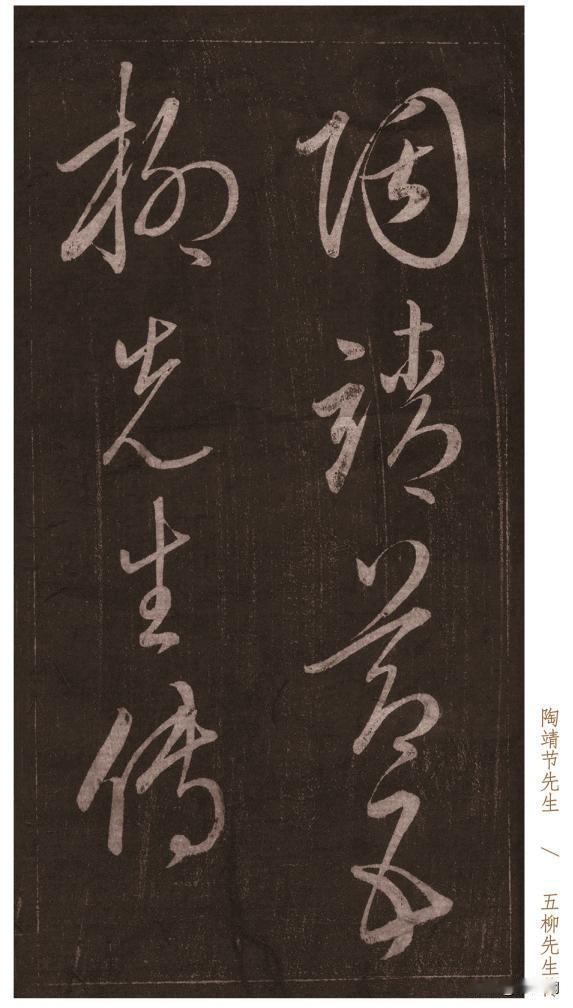 陶靖节五
柳先生传
陶靖节先生 / 五柳先生